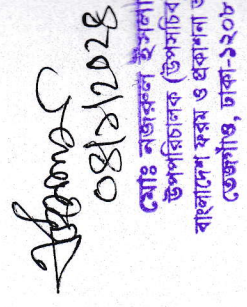 ০৪/১/২০২৪
মোঃ নজরুল ইসলা
উপপরিচালক (উপসচিব
বাংলাদেশ ফরম ও প্রকাশনা অ
তেজগাঁও, ঢাকা-১২০৮